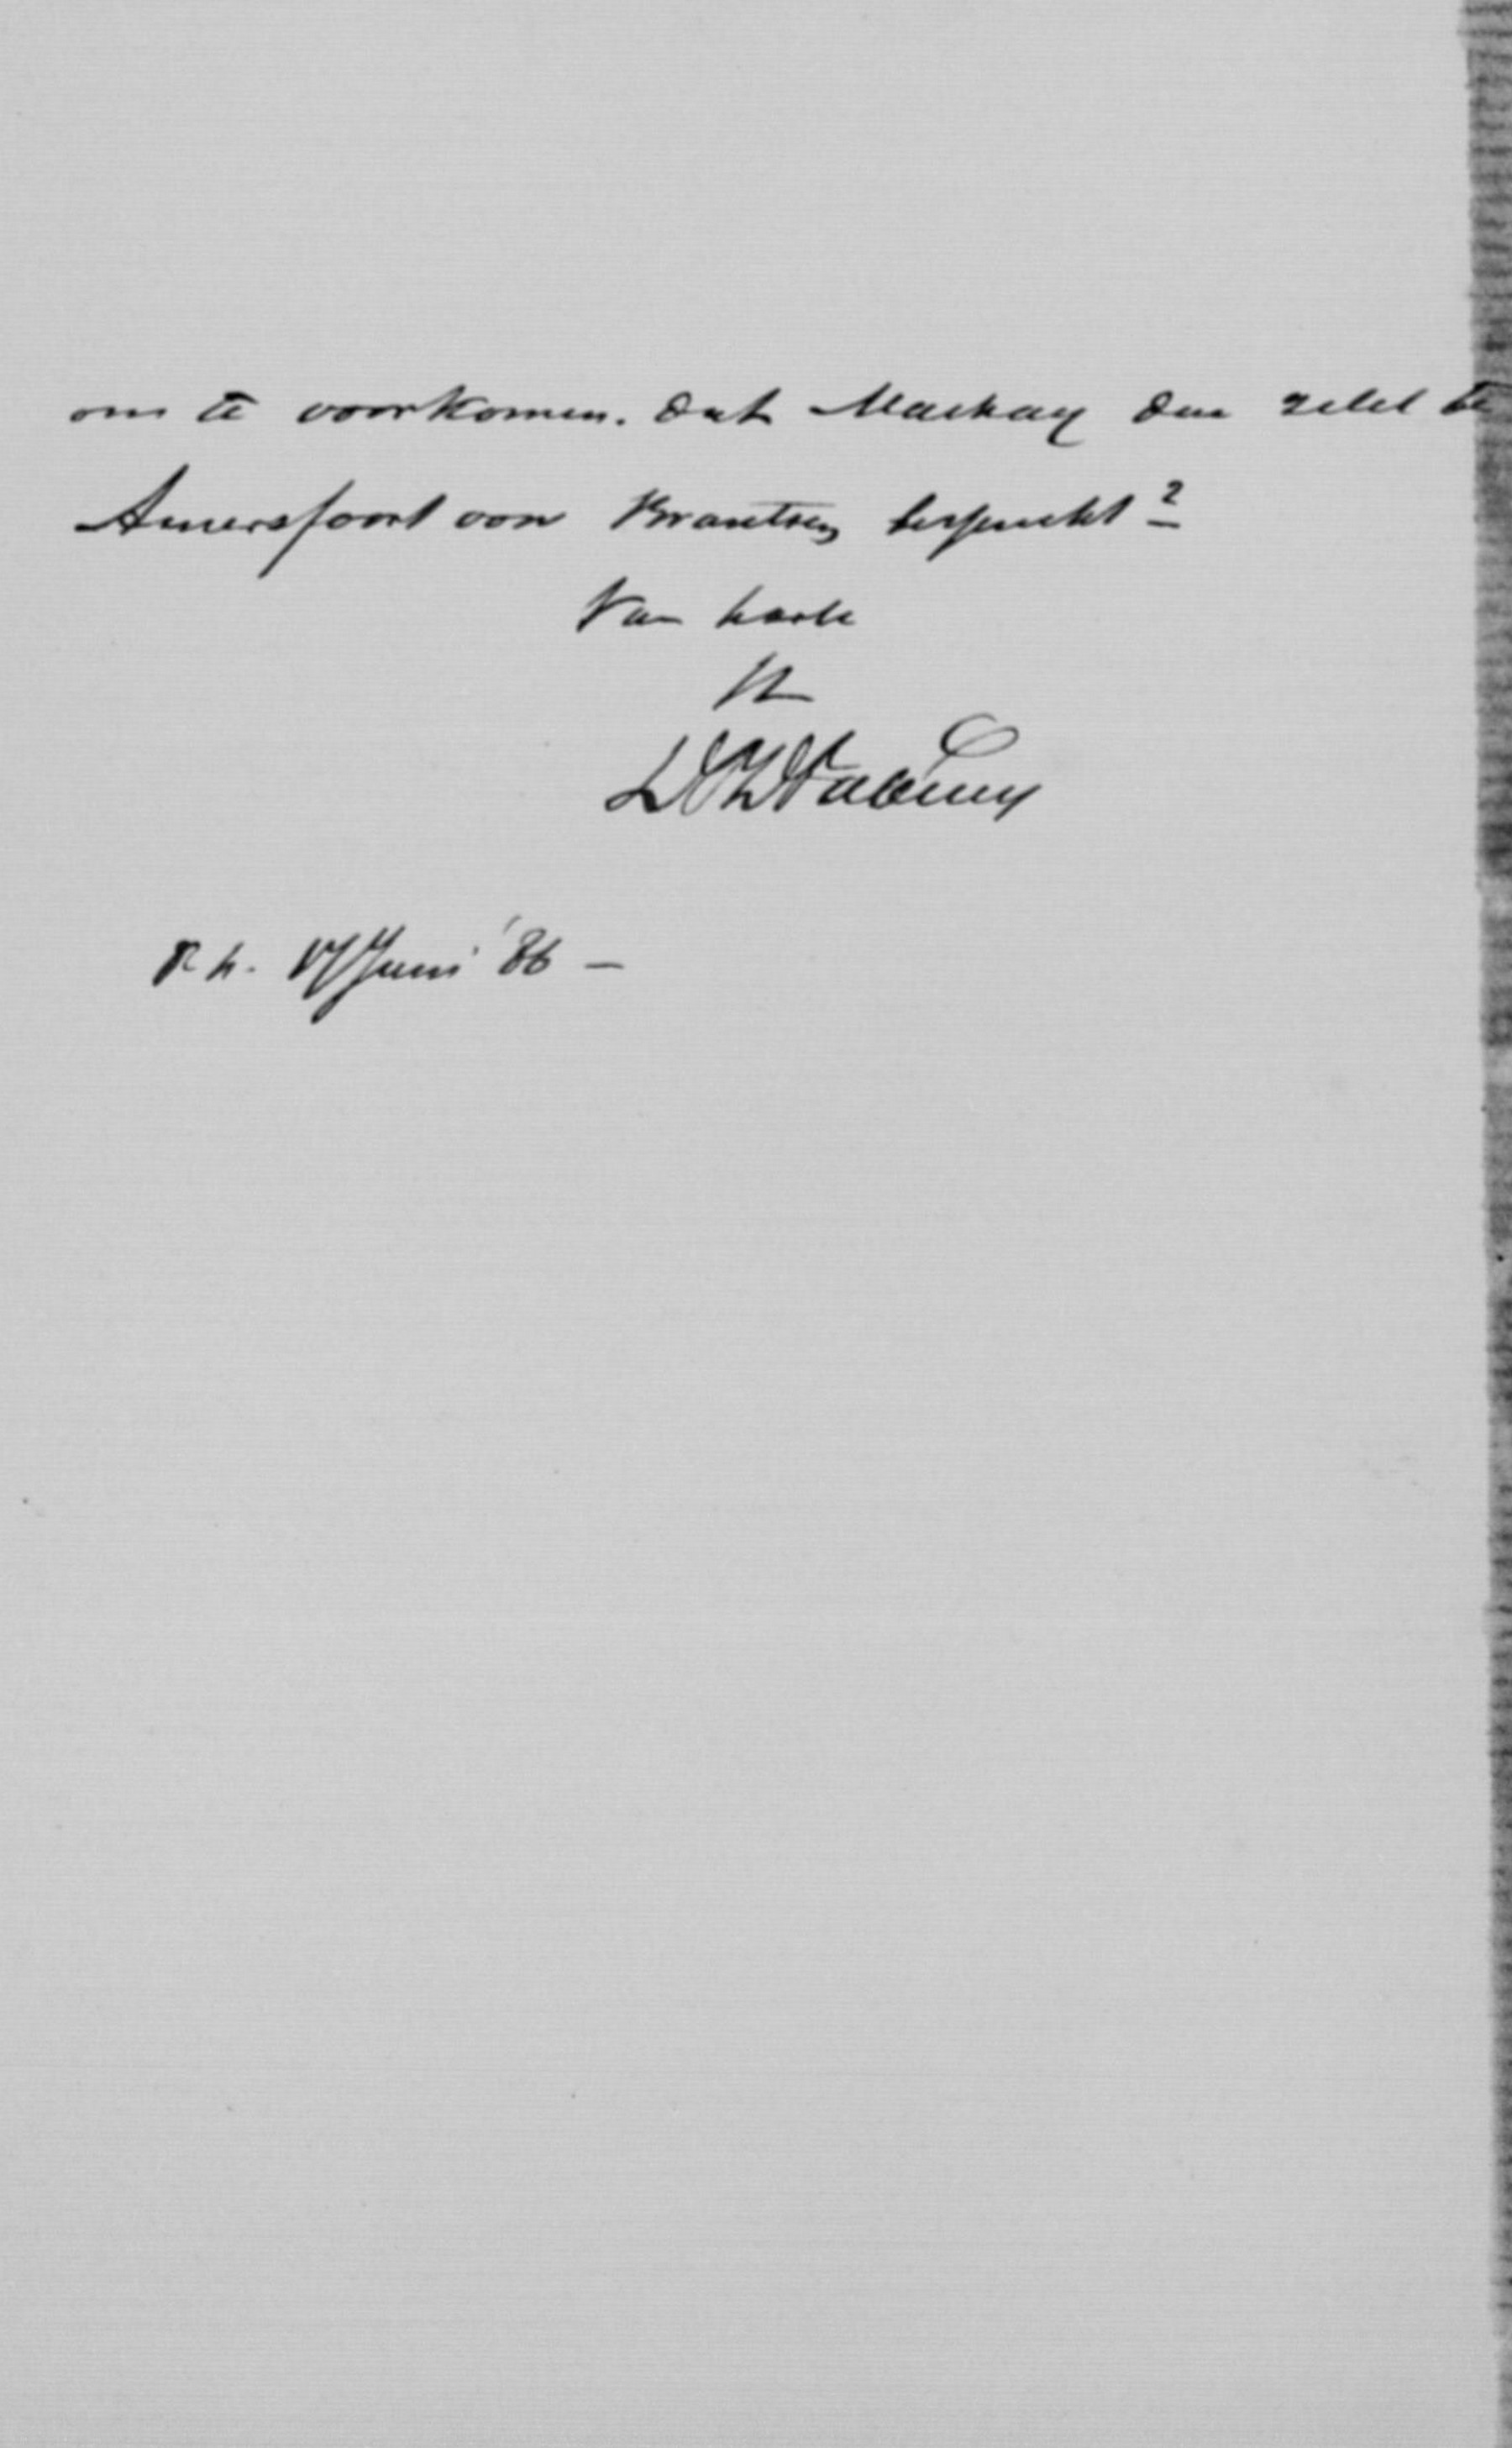 om te voorkomen. dat Mackay den zetel te
Amersfoort voor Brantsen bespreekt?
Van harte
tt
DPDFabius
R h. 17 Juni '86 —